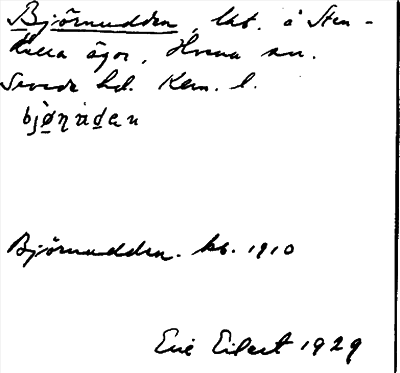 Björnudden, lht. å Sten-
kulla ägor, Hvena sn.
Sevede hd. Kalm. l.
bjøṇùden
Björnudden. kb. 1910
Eric Eilert 1929